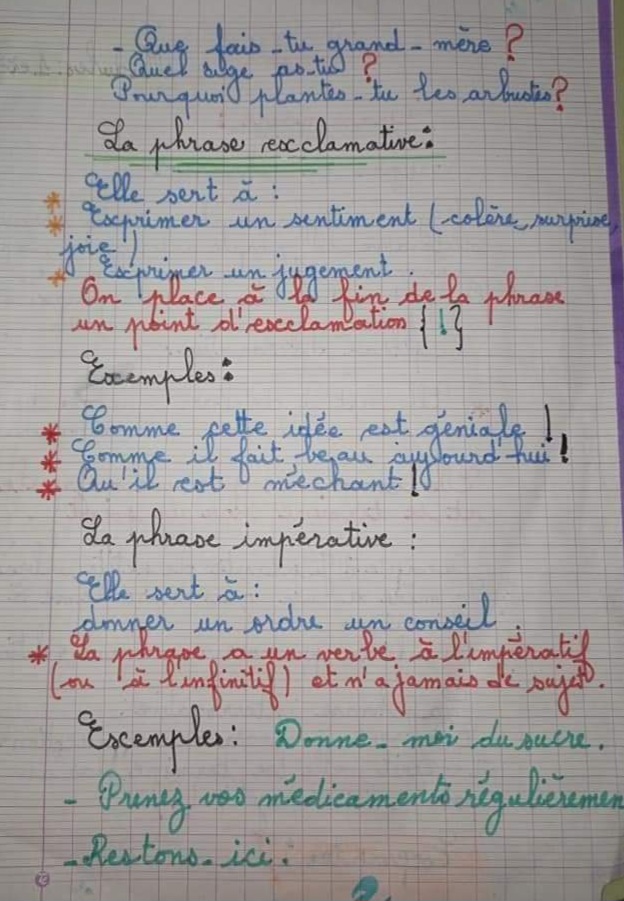 - Que fais-tu grand-mère ?
Quel âge as-tu ?
Pourquoi plantes-tu les arbustes ?
La phrase exclamative :
Elle sert à :
* Exprimer un sentiment (colère, surprise,
joie)
* Exprimer un jugement.
On place à la fin de la phrase
un point d'exclamation {!}
Exemples :
* Comme cette idée est géniale !
* Comme il fait beau aujourd'hui !
* Qu'il est méchant !
La phrase impérative :
Elle sert à :
donner un ordre un conseil.
* La phrase a un verbe à l'impératif
(ou à l'infinitif) et n'a jamais de sujet.
Exemples : Donne-moi du sucre.
- Prenez vos médicaments régulièremen
- Restons-ici.